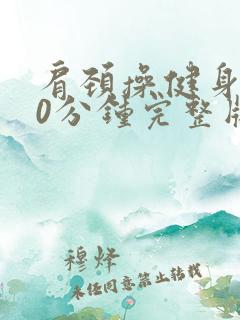 肩颈操健身
0分钟完整版
穆烽
未经同意禁止转载